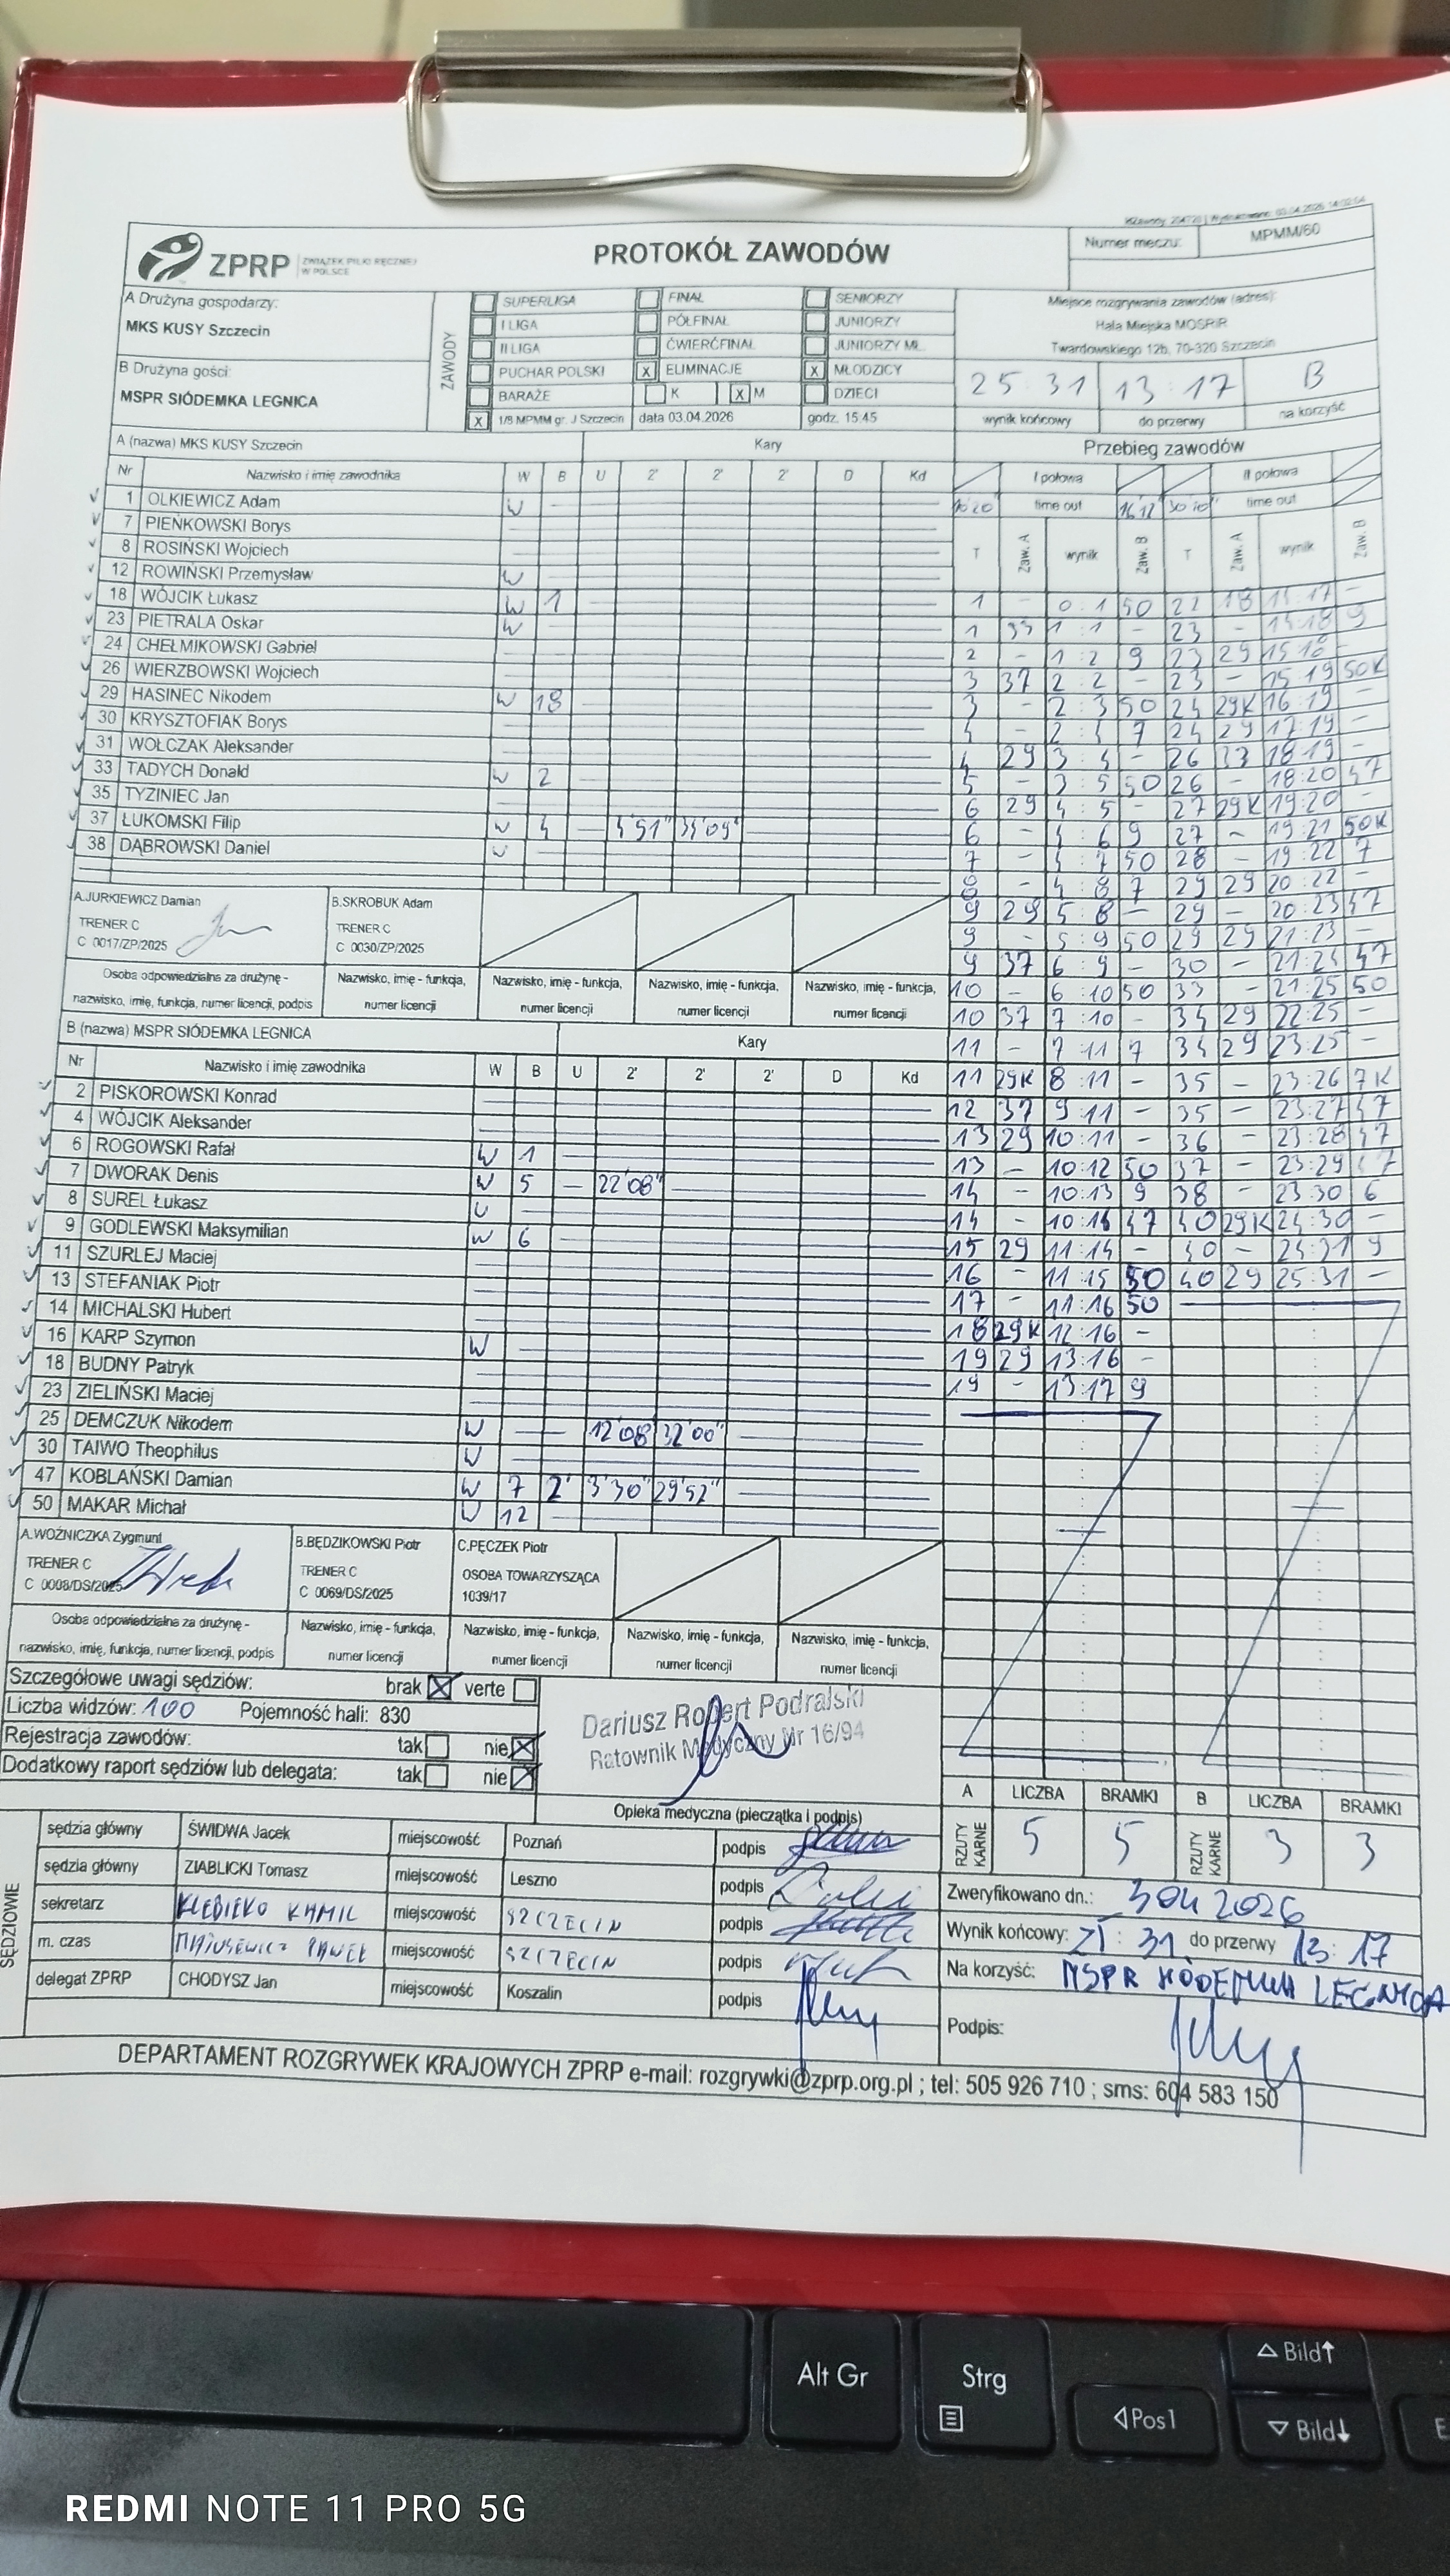 PROTOKÓŁ ZAWODÓW
ZPRP ZWIĄZEK PIŁKI RĘCZNEJ W POLSCE
Numer meczu: MPMM/60
A Drużyna gospodarzy:
MKS KUSY Szczecin
B Drużyna gości:
MSPR SIÓDEMKA LEGNICA
ZAWODY
SUPERLIGA FINAŁ SENIORZY
I LIGA PÓŁFINAŁ JUNIORZY
II LIGA ĆWIERĆFINAŁ JUNIORZY MŁ.
PUCHAR POLSKI x ELIMINACJE x MŁODZICY
BARAŻE K x M DZIECI
x 1/8 MPMM gr. J Szczecin data 03.04.2026 godz. 15:45
Miejsce rozgrywania zawodów (adres):
Hala Miejska MOSRiR
Twardowskiego 12b, 70-320 Szczecin
25:31 13:17 B
wynik końcowy do przerwy na korzyść
A (nazwa) MKS KUSY Szczecin Kary
Nr Nazwisko i imię zawodnika W B U 2' 2' 2' D Kd
1 OLKIEWICZ Adam W
7 PIEŃKOWSKI Borys
8 ROSIŃSKI Wojciech
12 ROWIŃSKI Przemysław W
18 WÓJCIK Łukasz W 1
23 PIETRALA Oskar W
24 CHEŁMIKOWSKI Gabriel
26 WIERZBOWSKI Wojciech
29 HASINEC Nikodem W 18
30 KRYSZTOFIAK Borys
31 WOŁCZAK Aleksander
33 TADYCH Donald W 2
35 TYZINIEC Jan
37 ŁUKOMSKI Filip W 4 – 4'51" 34'09"
38 DĄBROWSKI Daniel W
A.JURKIEWICZ Damian
TRENER C
C 0017/ZP/2025
B.SKROBUK Adam
TRENER C
C 0030/ZP/2025
Osoba odpowiedzialna za drużynę - nazwisko, imię, funkcja, numer licencji, podpis
Nazwisko, imię - funkcja, numer licencji
Nazwisko, imię - funkcja, numer licencji
Nazwisko, imię - funkcja, numer licencji
Nazwisko, imię - funkcja, numer licencji
B (nazwa) MSPR SIÓDEMKA LEGNICA Kary
Nr Nazwisko i imię zawodnika W B U 2' 2' 2' D Kd
2 PISKOROWSKI Konrad
4 WÓJCIK Aleksander
6 ROGOWSKI Rafał W 1
7 DWORAK Denis W 5 – 22'08"
8 SUREL Łukasz W
9 GODLEWSKI Maksymilian W 6
11 SZURLEJ Maciej
13 STEFANIAK Piotr
14 MICHALSKI Hubert
16 KARP Szymon W
18 BUDNY Patryk
23 ZIELIŃSKI Maciej
25 DEMCZUK Nikodem W – 12'08 32'00"
30 TAIWO Theophilus W
47 KOBLAŃSKI Damian W 7 2' 3'30" 29'52"
50 MAKAR Michał W 12
A.WOŹNICZKA Zygmunt
TRENER C
C 0008/DS/2025
B.BĘDZIKOWSKI Piotr
TRENER C
C 0069/DS/2025
C.PĘCZEK Piotr
OSOBA TOWARZYSZĄCA
1039/17
Osoba odpowiedzialna za drużynę - nazwisko, imię, funkcja, numer licencji, podpis
Nazwisko, imię - funkcja, numer licencji
Nazwisko, imię - funkcja, numer licencji
Nazwisko, imię - funkcja, numer licencji
Nazwisko, imię - funkcja, numer licencji
Przebieg zawodów
I połowa II połowa
time out 16'12 30'10" time out
T Zaw. A wynik Zaw. B T Zaw. A wynik Zaw. B
1 – 0:1 50 22 18 14:17 –
1 33 1:1 – 23 – 14:18 9
2 – 1:2 9 23 29 15:18 –
3 37 2:2 – 23 – 15:19 50K
3 – 2:3 50 24 29K 16:19 –
4 – 2:4 7 24 29 17:19 –
4 29 3:4 – 26 33 18:19 –
5 – 3:5 50 26 – 18:20 47
6 29 4:5 – 27 29K 19:20 –
6 – 4:6 9 27 – 19:21 50K
7 – 4:7 50 28 – 19:22 7
8 – 4:8 7 29 29 20:22 –
9 29 5:8 – 29 – 20:23 47
9 – 5:9 50 29 29 21:23 –
9 37 6:9 – 30 – 21:24 47
10 – 6:10 50 33 – 21:25 50
10 37 7:10 – 34 29 22:25 –
11 – 7:11 7 34 29 23:25 –
11 29K 8:11 – 35 – 23:26 7K
12 37 9:11 – 35 – 23:27 47
13 29 10:11 – 36 – 23:28 47
13 – 10:12 50 37 – 23:29 47
14 – 10:13 9 38 – 23:30 6
14 – 10:14 47 40 29K 24:30 –
15 29 11:14 – 40 – 24:31 9
16 – 11:15 50 40 29 25:31 –
17 – 11:16 50
18 29K 12:16 –
19 29 13:16 –
19 – 13:17 9
Szczegółowe uwagi sędziów: brak verte
Liczba widzów: 100 Pojemność hali: 830
Rejestracja zawodów: tak nie
Dodatkowy raport sędziów lub delegata: tak nie
Dariusz Robert Podralski
Ratownik Medyczny Nr 16/94
Opieka medyczna (pieczątka i podpis)
A LICZBA BRAMKI B LICZBA BRAMKI
RZUTY KARNE 5 5 RZUTY KARNE 3 3
SĘDZIOWIE
sędzia główny ŚWIDWA Jacek miejscowość Poznań podpis
sędzia główny ZIABLICKI Tomasz miejscowość Leszno podpis
sekretarz KLEBIEKO KAMIL miejscowość SZCZECIN podpis
m. czas MATUSEWICZ PAWEŁ miejscowość SZCZECIN podpis
delegat ZPRP CHODYSZ Jan miejscowość Koszalin podpis
Zweryfikowano dn.: 3 04 2026
Wynik końcowy: 25:31 do przerwy 13:17
Na korzyść: MSPR SIÓDEMKA LEGNICA
Podpis:
DEPARTAMENT ROZGRYWEK KRAJOWYCH ZPRP e-mail: rozgrywki@zprp.org.pl ; tel: 505 926 710 ; sms: 604 583 150
Alt Gr
Strg
Pos1
Bild↑
Bild↓
REDMI NOTE 11 PRO 5G